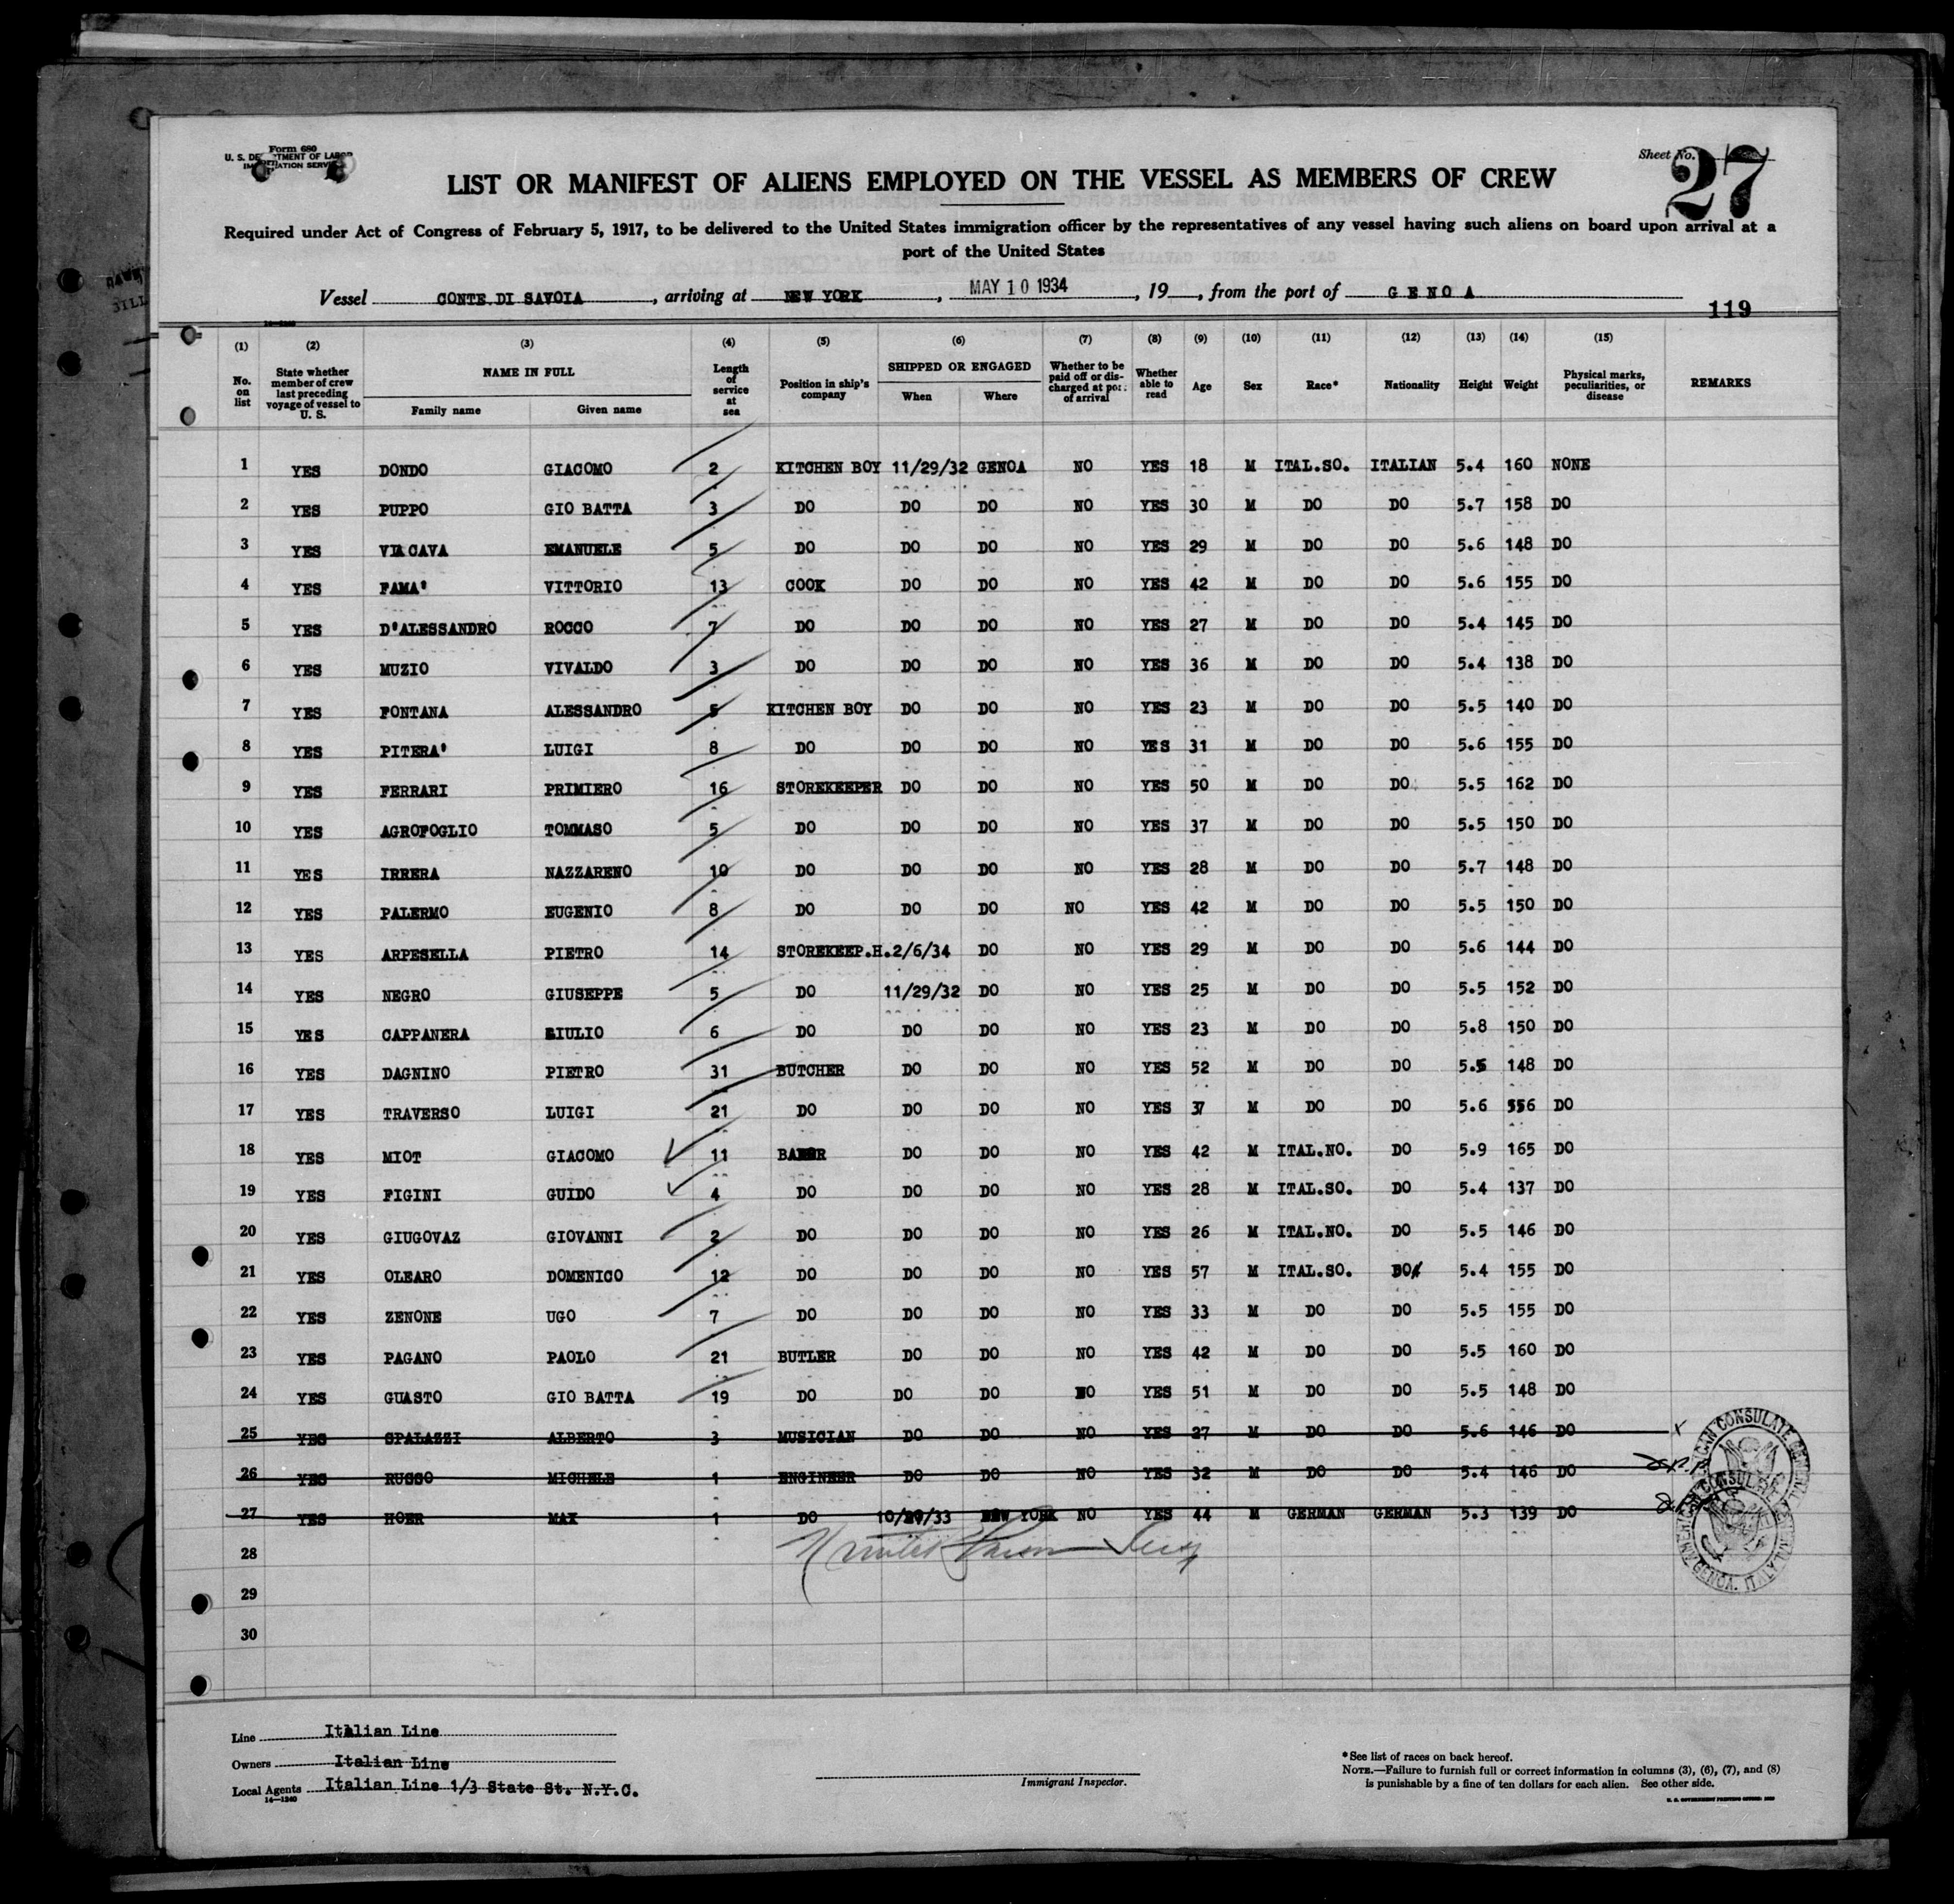 Form 680
U. S. DEPARTMENT OF LABOR
IMMIGRATION SERVICE
Sheet No.
27
LIST OR MANIFEST OF ALIENS EMPLOYED ON THE VESSEL AS MEMBERS OF CREW
Required under Act of Congress of February 5, 1917, to be delivered to the United States immigration officer by the representatives of any vessel having such aliens on board upon arrival at a
port of the United States
Vessel CONTE DI SAVOIA, arriving at NEW YORK, MAY 10 1934, 19, from the port of GENOA
119
(1) No. on list (2) State whether member of crew last preceding voyage of vessel to U. S. (3) NAME IN FULL Family name Given name (4) Length of service at sea (5) Position in ship's company (6) SHIPPED OR ENGAGED When Where (7) Whether to be paid off or discharged at port of arrival (8) Whether able to read (9) Age (10) Sex (11) Race* (12) Nationality (13) Height (14) Weight (15) Physical marks, peculiarities, or disease REMARKS
1 YES DONDO GIACOMO 2 KITCHEN BOY 11/29/32 GENOA NO YES 18 M ITAL.SO. ITALIAN 5.4 160 NONE
2 YES PUPPO GIO BATTA 3 DO DO DO NO YES 30 M DO DO 5.7 158 DO
3 YES VIACAVA EMANUELE 5 DO DO DO NO YES 29 M DO DO 5.6 148 DO
4 YES FAMA' VITTORIO 13 COOK DO DO NO YES 42 M DO DO 5.6 155 DO
5 YES D'ALESSANDRO ROCCO 7 DO DO DO NO YES 27 M DO DO 5.4 145 DO
6 YES MUZIO VIVALDO 3 DO DO DO NO YES 36 M DO DO 5.4 138 DO
7 YES FONTANA ALESSANDRO 5 KITCHEN BOY DO DO NO YES 23 M DO DO 5.5 140 DO
8 YES PITERA' LUIGI 8 DO DO DO NO YES 31 M DO DO 5.6 155 DO
9 YES FERRARI PRIMIERO 16 STOREKEEPER DO DO NO YES 50 M DO DO 5.5 162 DO
10 YES AGROFOGLIO TOMMASO 5 DO DO DO NO YES 37 M DO DO 5.5 150 DO
11 YES IRRERA NAZZARENO 10 DO DO DO NO YES 28 M DO DO 5.7 148 DO
12 YES PALERMO EUGENIO 8 DO DO DO NO YES 42 M DO DO 5.5 150 DO
13 YES ARPESELLA PIETRO 14 STOREKEEP.H. 2/6/34 DO NO YES 29 M DO DO 5.6 144 DO
14 YES NEGRO GIUSEPPE 5 DO 11/29/32 DO NO YES 25 M DO DO 5.5 152 DO
15 YES CAPPANERA GIULIO 6 DO DO DO NO YES 23 M DO DO 5.8 150 DO
16 YES DAGNINO PIETRO 31 BUTCHER DO DO NO YES 52 M DO DO 5.5 148 DO
17 YES TRAVERSO LUIGI 21 DO DO DO NO YES 37 M DO DO 5.6 556 DO
18 YES MIOT GIACOMO 11 BAKER DO DO NO YES 42 M ITAL.NO. DO 5.9 165 DO
19 YES FIGINI GUIDO 4 DO DO DO NO YES 28 M ITAL.SO. DO 5.4 137 DO
20 YES GIUGOVAZ GIOVANNI 2 DO DO DO NO YES 26 M ITAL.NO. DO 5.5 146 DO
21 YES OLEARO DOMENICO 12 DO DO DO NO YES 57 M ITAL.SO. DO 5.4 155 DO
22 YES ZENONE UGO 7 DO DO DO NO YES 33 M DO DO 5.5 155 DO
23 YES PAGANO PAOLO 21 BUTLER DO DO NO YES 42 M DO DO 5.5 160 DO
24 YES GUASTO GIO BATTA 19 DO DO DO NO YES 51 M DO DO 5.5 148 DO
25 YES SPALAZZI ALBERTO 3 MUSICIAN DO DO NO YES 27 M DO DO 5.6 146 DO
26 YES RUSSO MICHELE 1 ENGINEER DO DO NO YES 32 M DO DO 5.4 146 DO
27 YES HOER MAX 1 DO 10/20/33 NEW YORK NO YES 44 M GERMAN GERMAN 5.3 139 DO
28
29
30
AMERICAN CONSULATE GENERAL
AMERICAN CONSULATE GENERAL GENOA, ITALY
Line Italian Line
Owners Italian Line
Local Agents Italian Line 1/3 State St. N.Y.C.
14—1240
Immigrant Inspector.
*See list of races on back hereof.
NOTE.—Failure to furnish full or correct information in columns (3), (6), (7), and (8)
is punishable by a fine of ten dollars for each alien. See other side.